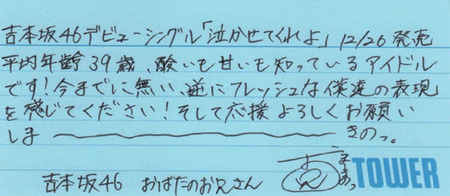 吉本坂46デビューシングル「泣かせてくれよ」12/26発売
平均年齢39歳、酸いも甘いも知っているアイドル
です!今までに無い、逆にフレッシュな僕達の表現
を感じてください!そして応援よろしくお願い
しま〜〜〜きのっ。
吉本坂46 おばたのお兄さん
TOWER